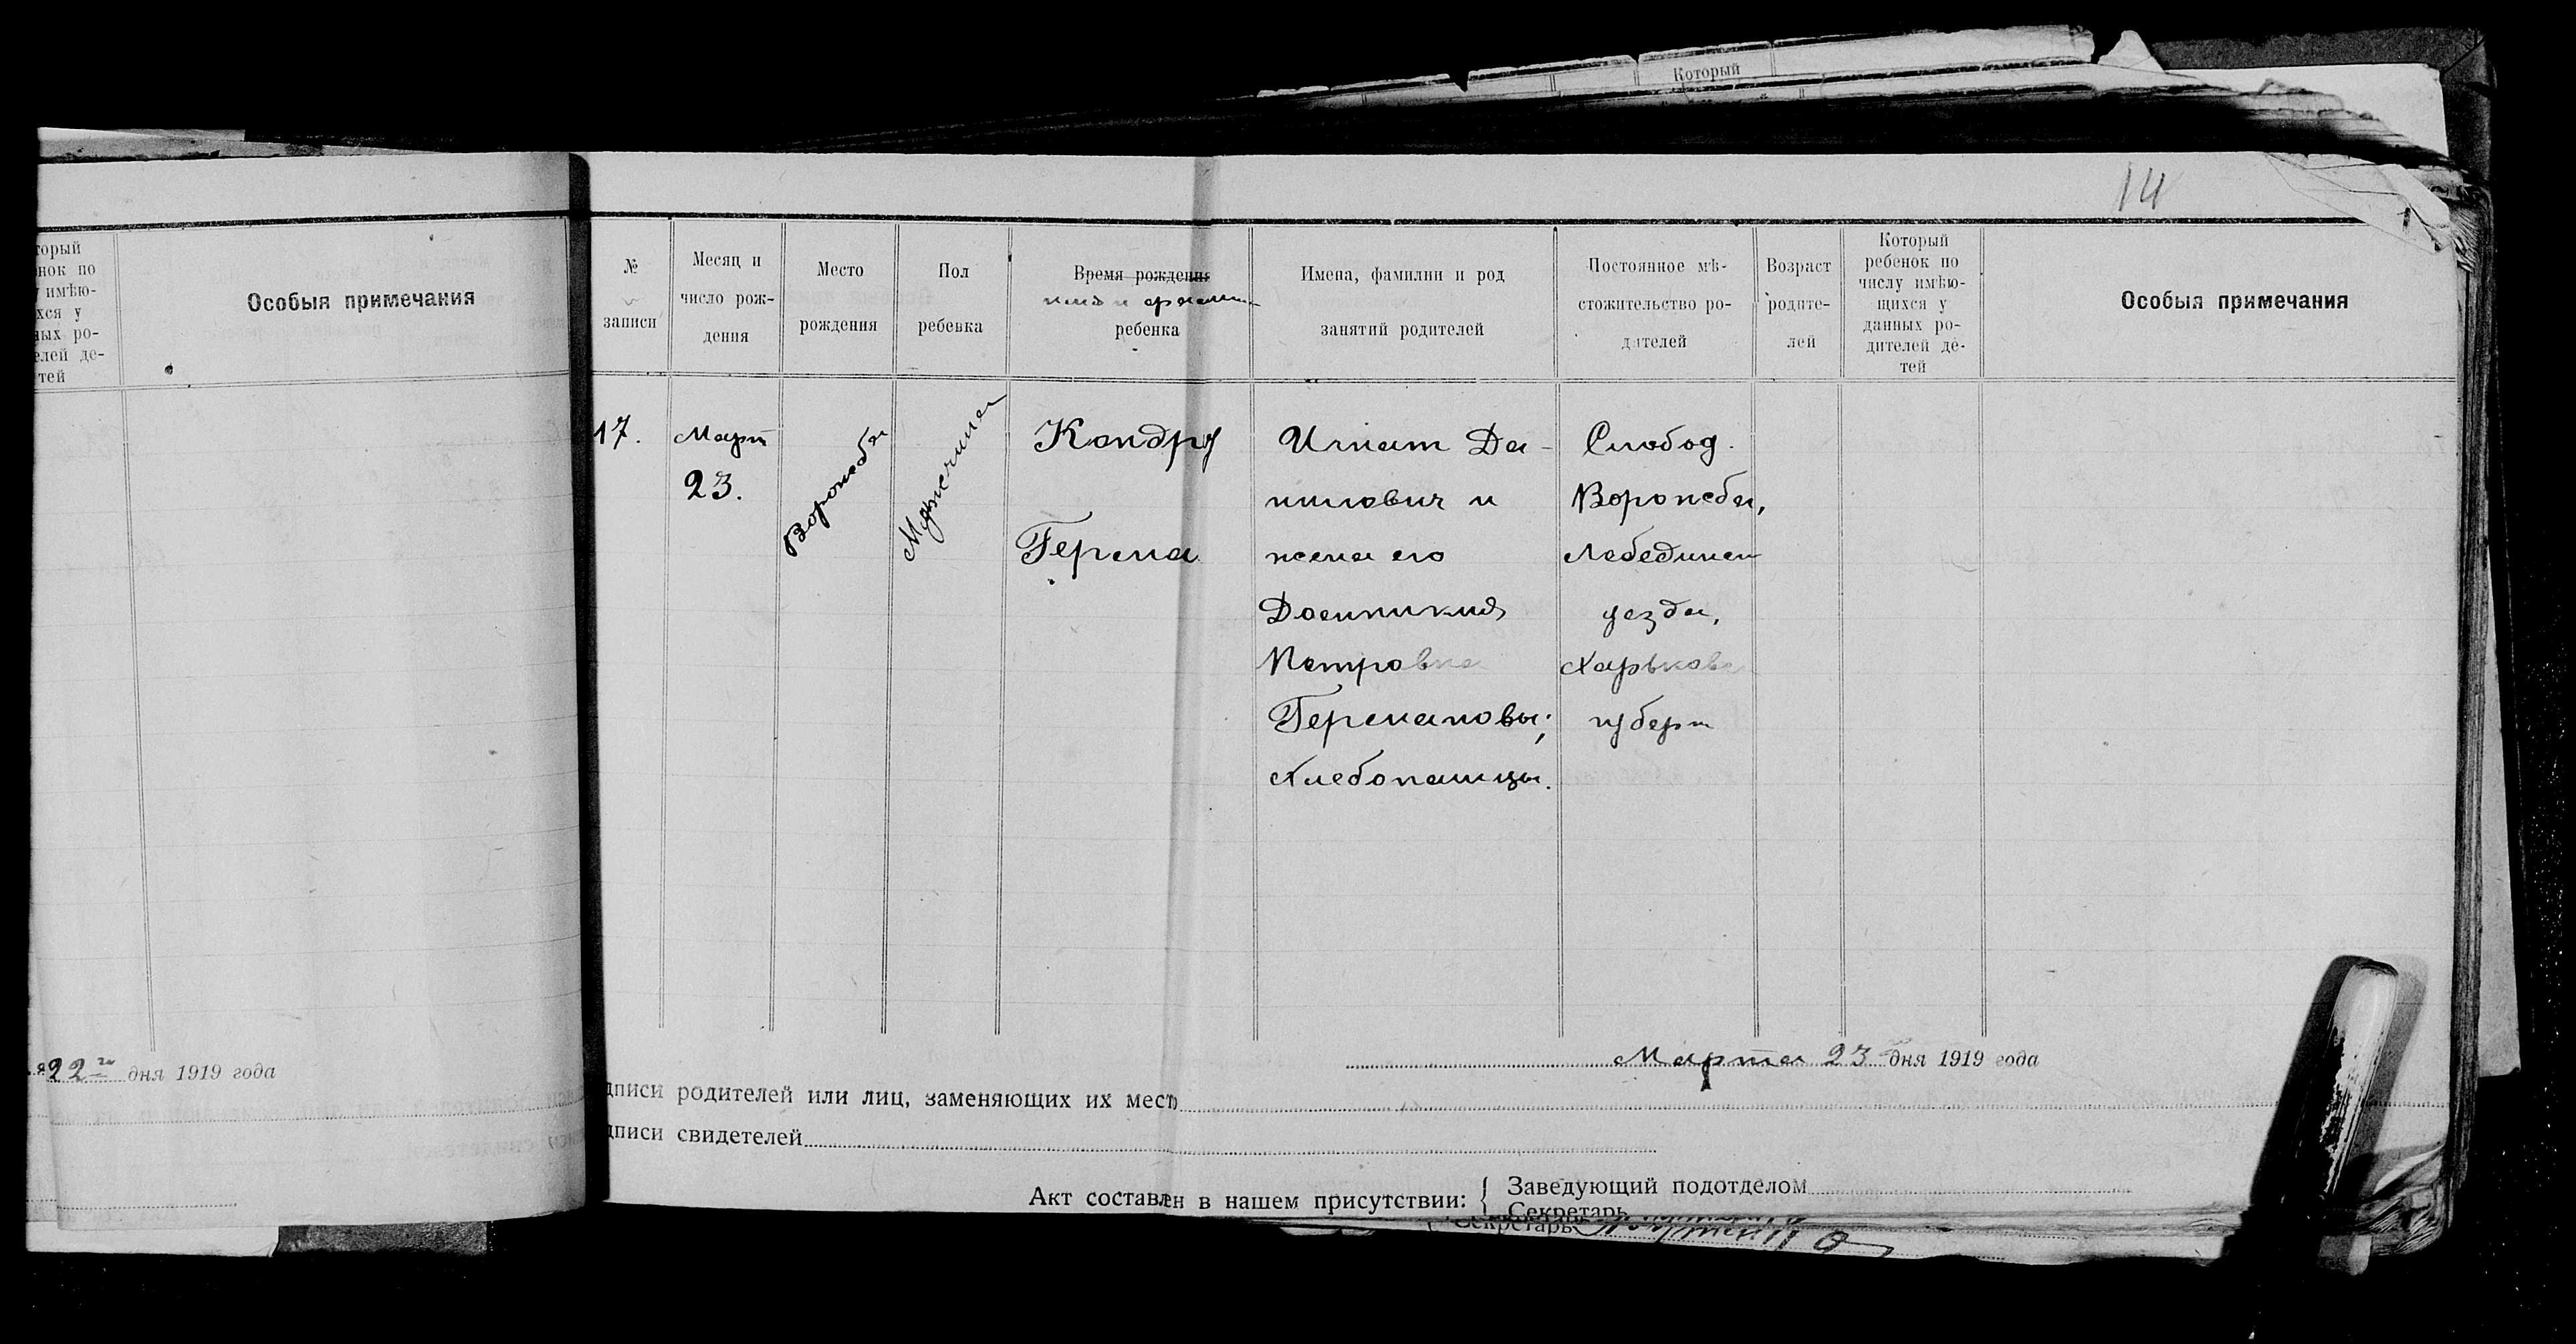 Который
14
торый
нок по
у имѣю-
хся у
ных ро-
елей де-
тей
Особыя примечания
22 го дня 1919 года
№
записи
Месяц и
число рож-
дения
Место
рождения
Пол
ребенка
Время рождения
имя и
ребенка
Имена, фамилии и род
занятий родителей
Постоянное мѣ-
стожительство ро-
дителей
Возраст
родите-
лей
Который
ребенок по
числу имѣю-
щихся у
данных ро-
дителей де-
тей
Особыя примечания
17.
Март
23.
Ворожба
Мужчина
Кондр
Герма
Игнат Да-
нилович и
жена его
Домникия
Петровна
Германовы;
Хлебопашцы.
Слобод.
Ворожба,
Лебединск
уезда,
Харьков
губерн
Марта 23 дня 1919 года
дписи родителей или лиц, заменяющих их место
дписи свидетелей
Акт составлен в нашем присутствии:
Заведующий подотделом
Секретарь
Секретарь